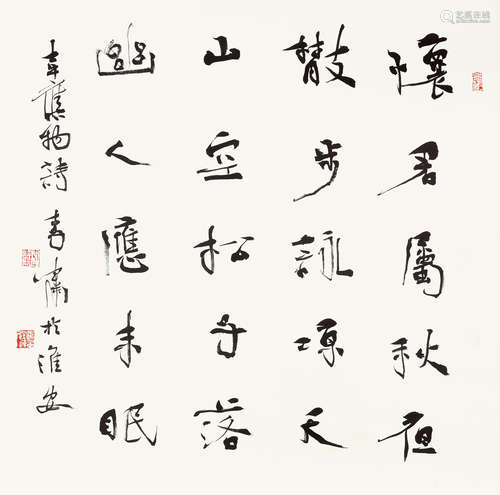 懷君屬秋夜
散步詠涼天
山空松子落
幽人應未眠
韋應物詩 青嘯於淮安